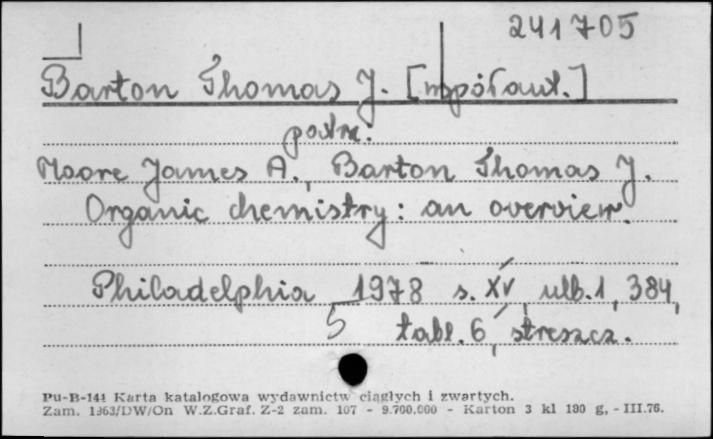 241705
Barton Thomas J. [współaut.]
patrz:
Moore James A., Barton Thomas J.
Organic chemistry: an overview.
Philadelphia 1978 s. XV, ulb. 1, 384,
5 tabl. 6, streszcz.
Pu-B-144 Karta katalogowa wydawnictw ciągłych i zwartych.
Zam. 1363/DW/On W.Z.Graf. Z-2 zam. 107 - 9.700.000 - Karton 3 kl 180 g, - III.76.